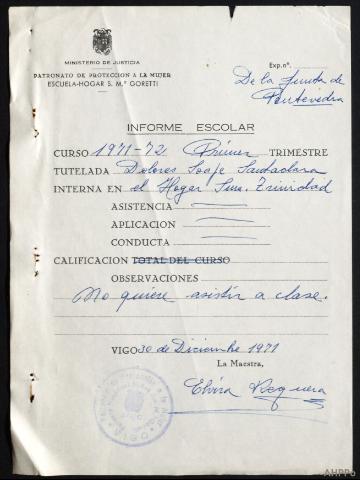 MINISTERIO DE JUSTICIA
PATRONATO DE PROTECCION A LA MUJER
ESCUELA-HOGAR S. Mª GORETTI
Exp.nº
De la Junta de
Pontevedra
INFORME ESCOLAR
CURSO 1971-72 Primer TRIMESTRE
TUTELADA Dolores Soaje Santaclara
INTERNA EN el Hogar Sma. Trinidad
ASISTENCIA
APLICACION
CONDUCTA
CALIFICACION TOTAL DEL CURSO
OBSERVACIONES
No quiere asistir a clase.
VIGO 30 de Diciembre 1971
La Maestra,
Elvira Reguera
VIGO
AHPPo